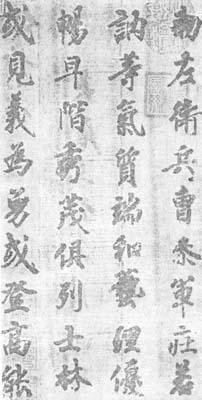 勅左衛兵曹叅軍莊若
訥等氣質端和藝理優
暢早階秀茂俱列士林
或見義為勇或登高能